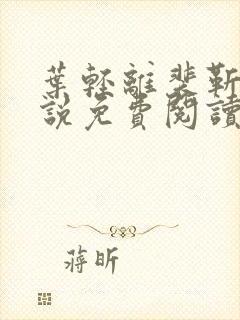 葉輕離裴靳
說免費閱讀
蔣昕